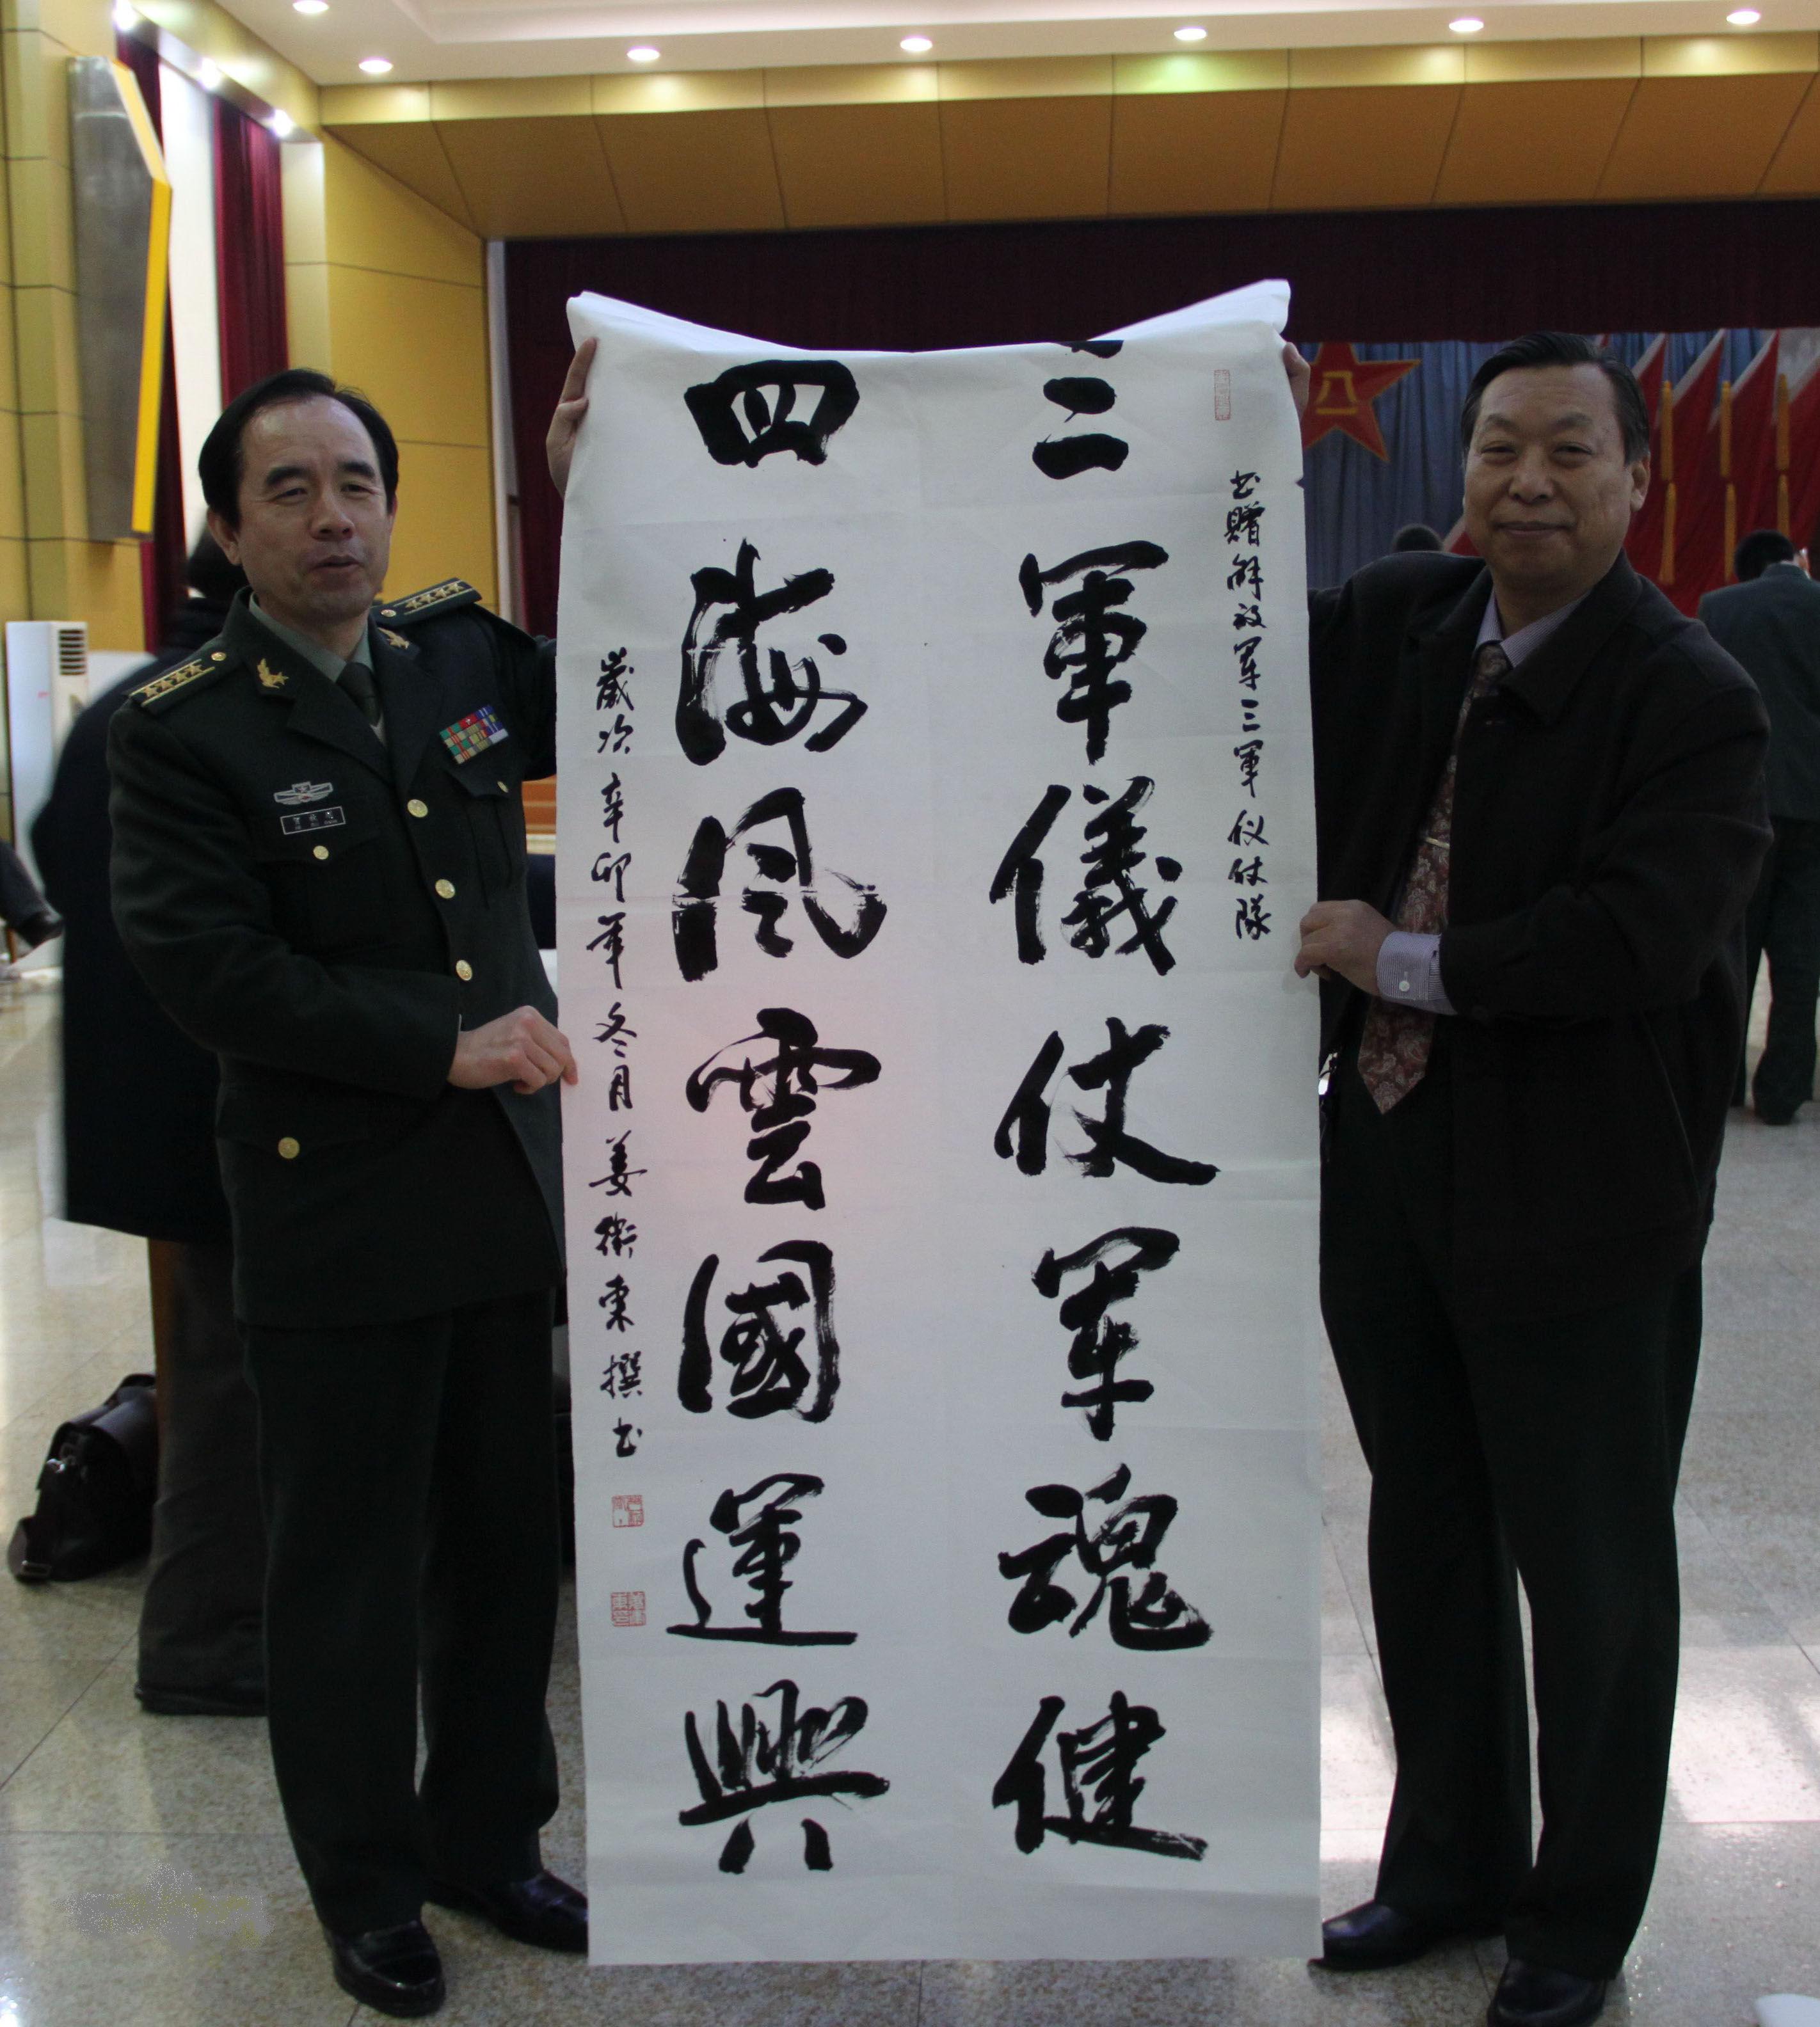 书赠解放军三軍仪仗隊
三軍儀仗军魂健
四海风雲國運興
歲次辛卯年冬月姜衛東撰书
八一